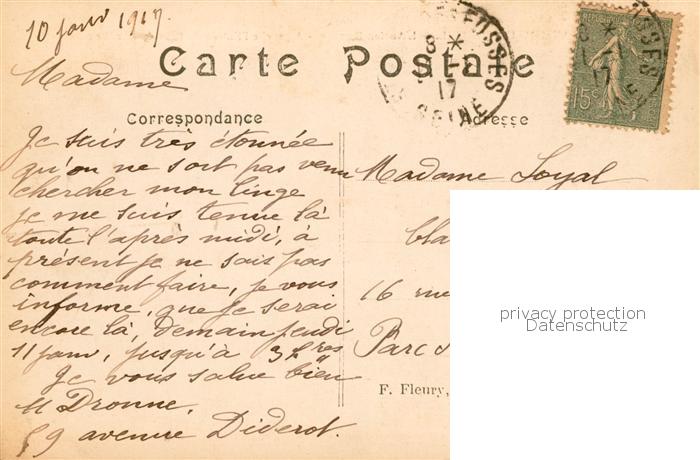 10 janv 1917
Madame
Carte Postale
Correspondance
Adresse
Je suis très étonnée
qu'on ne soit pas venu
chercher mon linge
je me suis tenue là
toute l'après midi, à
présent je ne sais pas
comment faire, je vous
informe, que je serai
encore là, demain jeudi
11 janv, jusqu'à 3 hres
Je vous salue bien
M Dronne.
59 avenue Diderot.
Madame Loyal
16 rue
Parc
F. Fleury,
15c
8
17
SEINE
privacy protection
Datenschutz